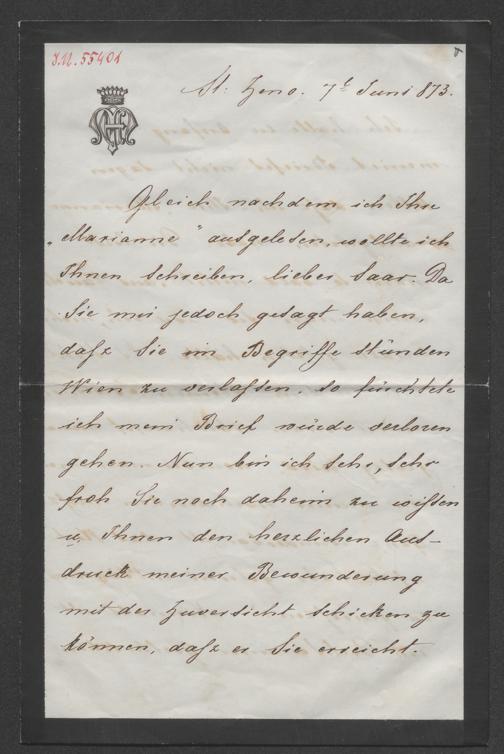 J.N. 55401
St. Zeno. 7t Juni 873.
Gleich nachdem ich Ihre
„Marianne" ausgelesen, wollte ich
Ihnen schreiben, lieber Saar. Da
Sie mir jedoch gesagt haben,
dafz Sie im Begriffe stünden
Wien zu verlassen, so fürchtete
ich mein Brief würde verloren
gehen. Nun bin ich sehr, sehr
froh Sie noch daheim zu wissen
u Ihnen den herzlichen Aus-
druck meiner Bewunderung
mit der Zuversicht schicken zu
können, dafz er Sie erreicht.